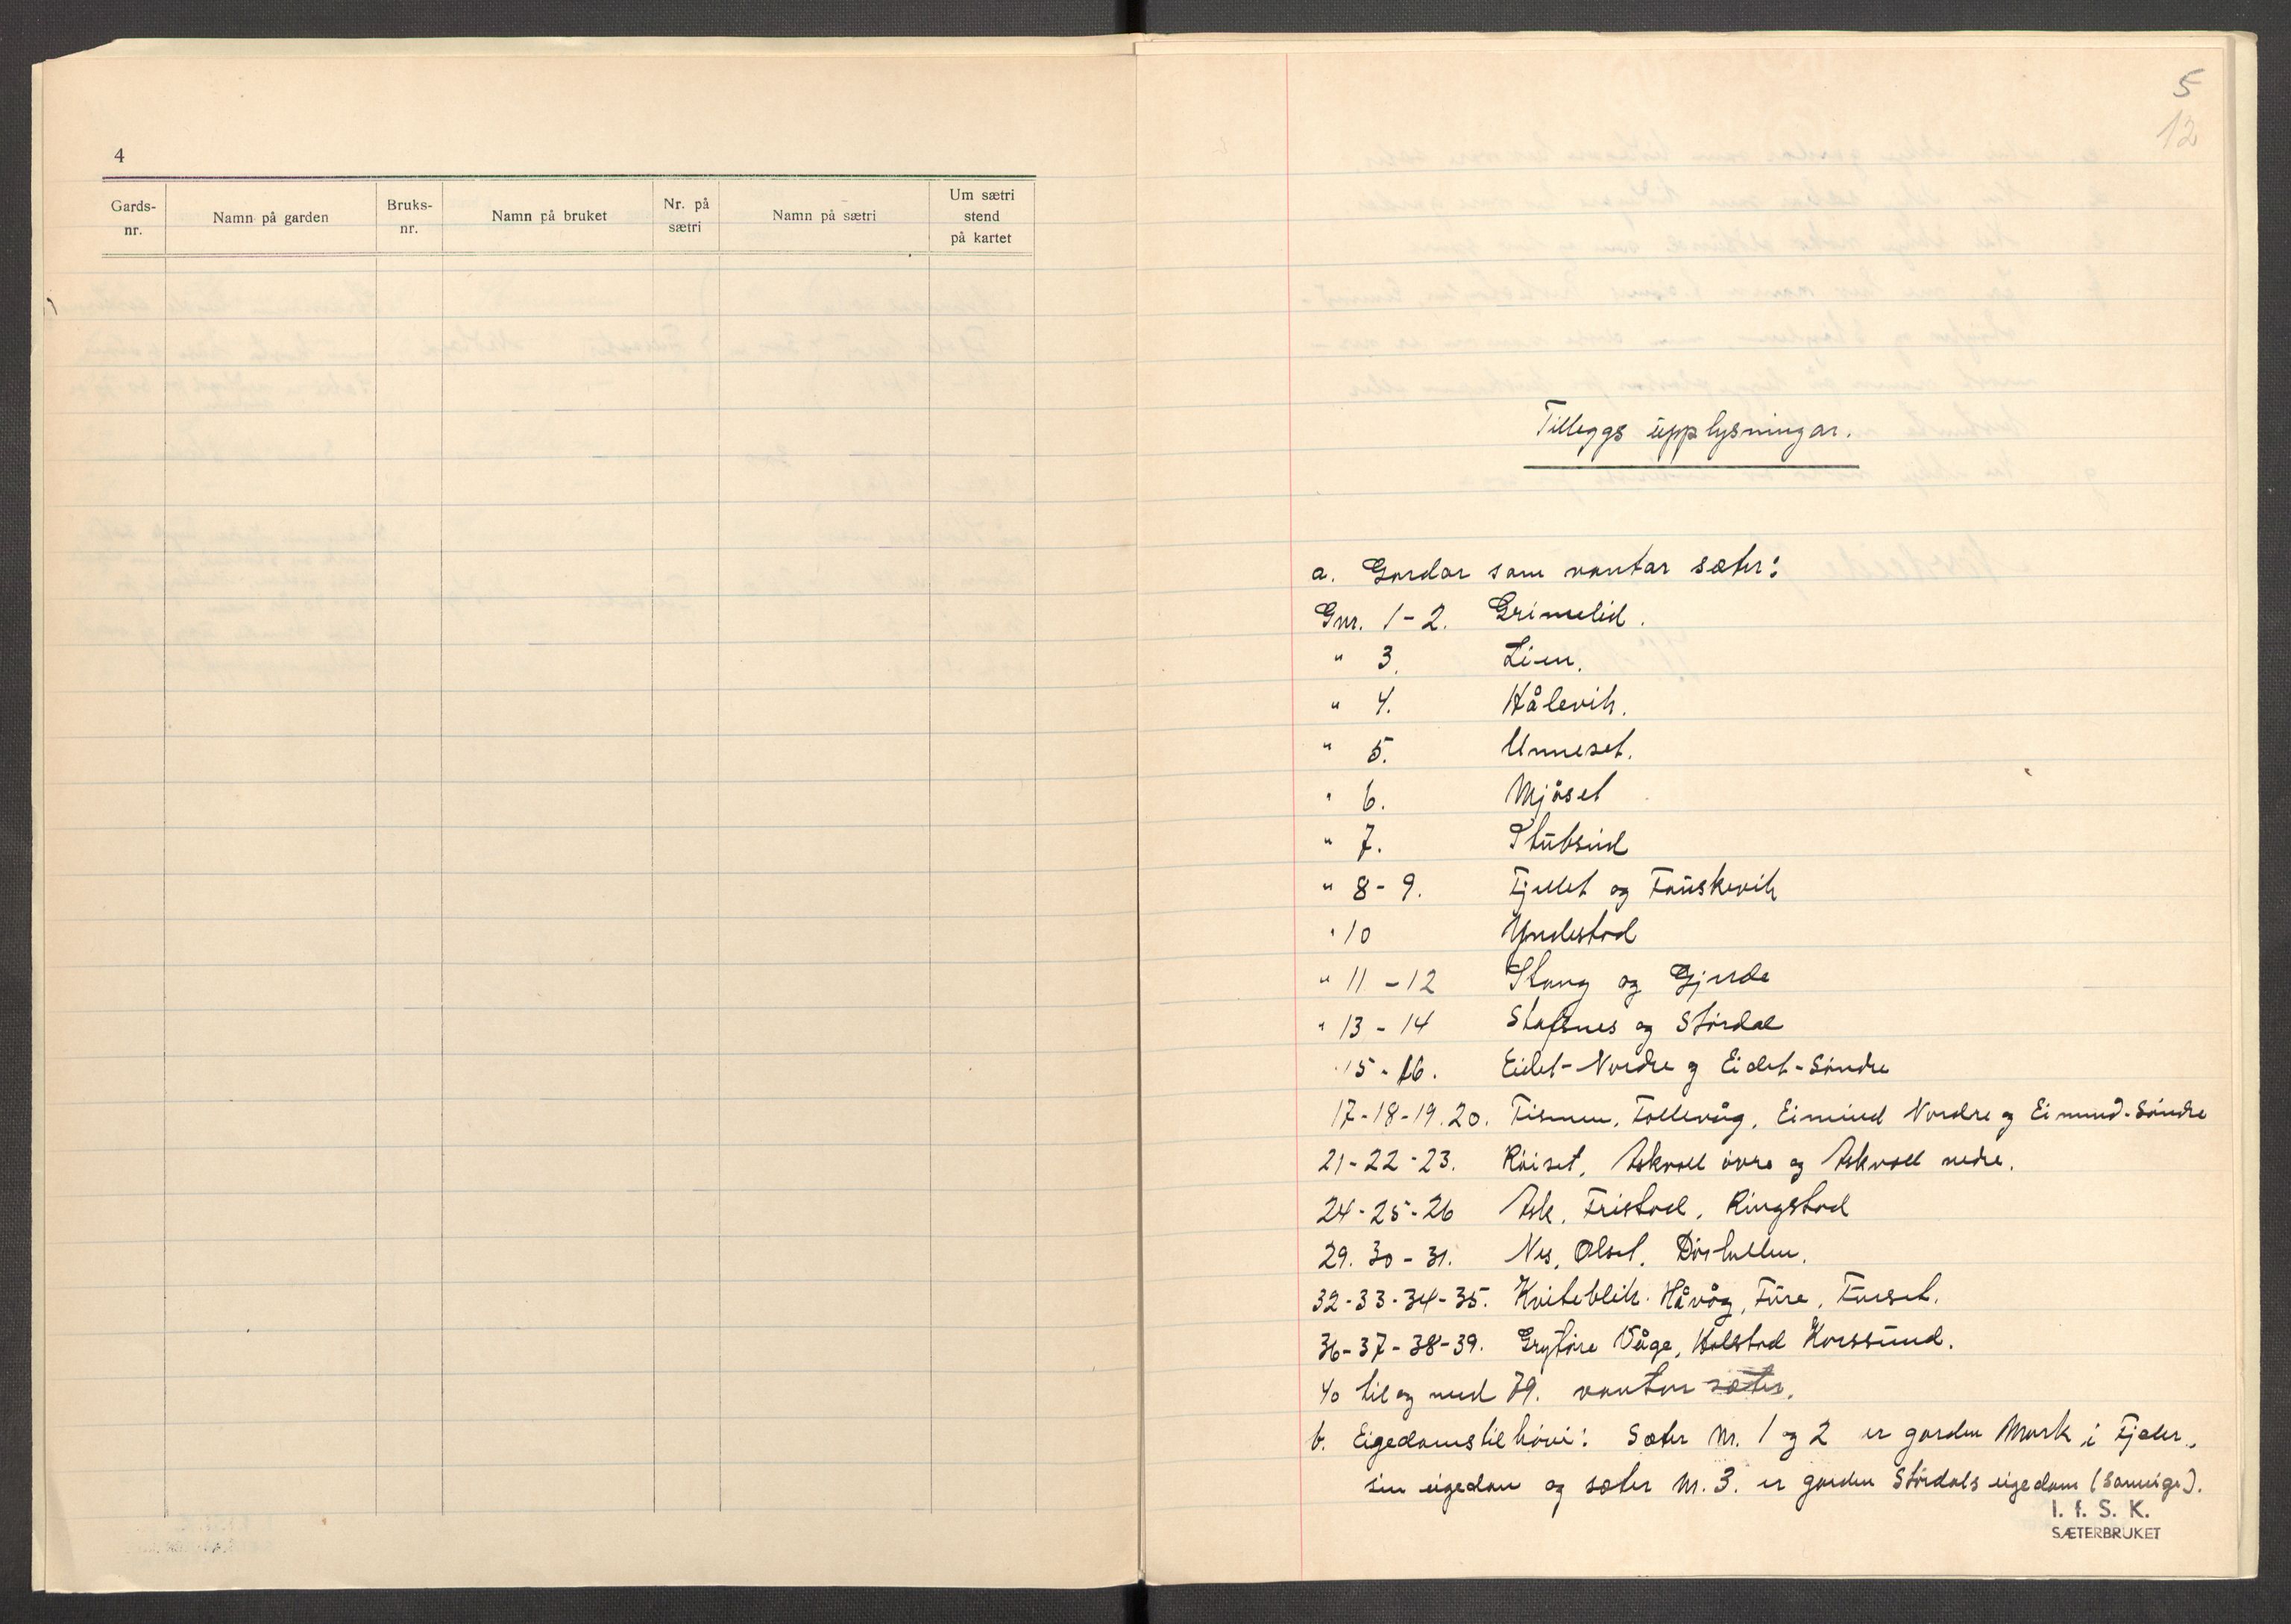 4
Gards-
nr.
Namn på garden
Bruks-
nr.
Namn på bruket
Nr. på
sætri
Namn på sætri
Um sætri
stend
på kartet
5
12
Tilleggs upplysningar.
a. Gardar som vantar sæter:
Gnr. 1-2. Grimelid.
" 3. Lien.
" 4. Hålevik.
" 5. Unneset.
" 6. Mjåset
" 7. Stubseid
" 8-9. Fjellet og Fauskevik
" 10 Yndestad
" 11-12 Stang og Gjerde
" 13-14 Stafsnes og Stórdal
" 15-16. Eidet-Nordre og Eidet-Söndre
17-18-19.20. Tismen, Follevåg, Eimind Nordre og Eimund-Söndre
21-22-23. Röiset, Askvoll övre og Askvoll nedre.
24-25-26 Ask, Fristad, Ringstad
29. 30-31. Nes, Olset,
32-33-34-35. Kviteblik. Håvåg, Fure, Furset.
36-37-38-39. Grytöire Våge, Holstad Korssund.
40 til og med 79. vantar sæter.
b. Eigedomstilhöve: Sæter nr. 1 og 2 er garden Mork i Fjaler,
sin eigedom og sæter nr. 3. er garden Stórdals eigedom (sameige).
I. f. S. K.
SÆTERBRUKET